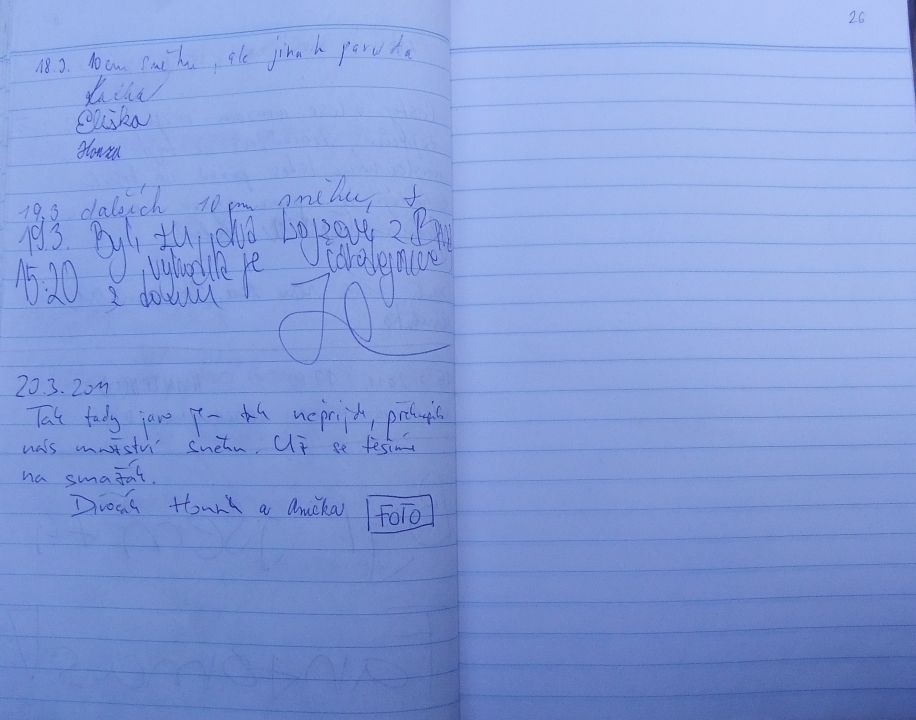 26
18.3. 10cm sněhu, ale jinak paráda
Kačka
Eliška
Honza
19.3 dalších 10 cm sněhu,
19.3. Byli tu dva z Brna
15:20 vyhodila je čarodejnice
z domu
20.3.2011
Tak tady jaro jen tak nepřijde, překvapilo
nás množství sněhu. Už se těšíme
na smažák.
Dvořák Honzík a Anička FOTO